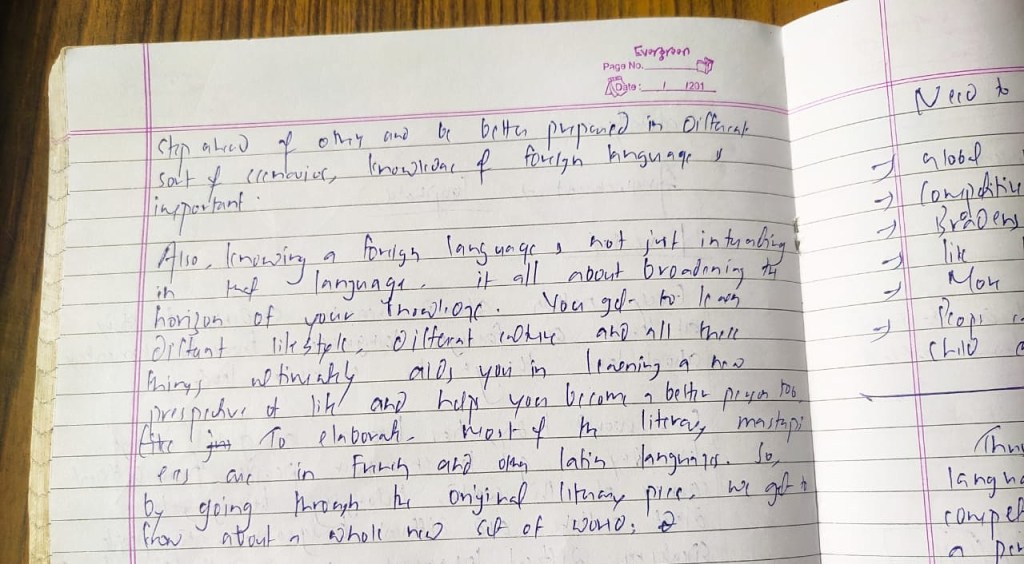 Evergreen
Page No.
Date: / /201
step ahead of others and be better prepared in different
sort of scenarios, knowledge of foreign language is
important.
Also, knowing a foreign language is not just
in that language. it all about broadening the
horizon of your knowledge. You get to learn
different lifestyle, different culture and all these
things ultimately aids you in learning a new
prespective of life and helps you become a better person too.
To elaborate, most of the literary mastapi
eces are in French and other latin languages. So,
by going through the original literary piece, we get to
know about a whole new set of world.
Need to
→ global
→ Competitive
→ Broadens
life
→ More
→ Peopl
child
langua
compet
a per